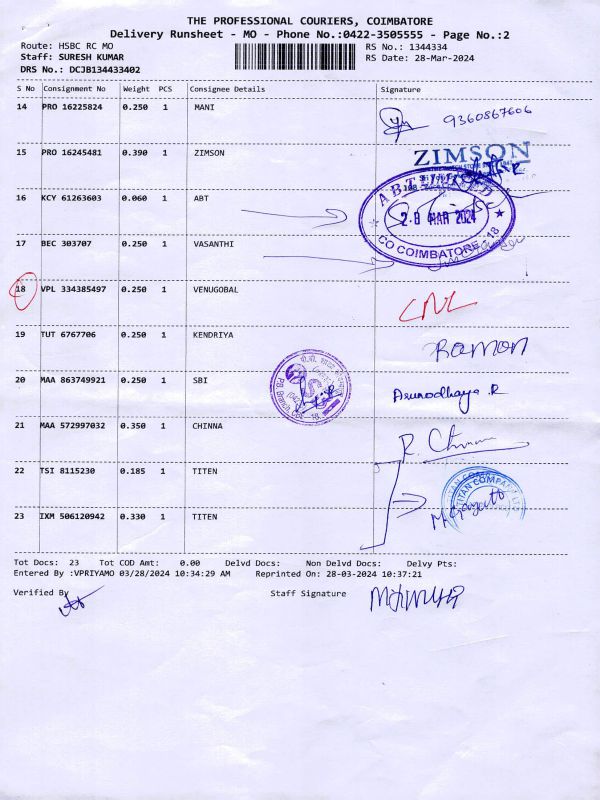 THE PROFESSIONAL COURIERS, COIMBATORE
Delivery Runsheet - MO - Phone No.:0422-3505555 - Page No.:2
Route: HSBC RC MO RS No.: 1344334
Staff: SURESH KUMAR RS Date: 28-Mar-2024
DRS No.: DCJB134433402
S No Consignment No Weight PCS Consignee Details Signature
14 PRO 16225824 0.250 1 MANI 9360867606
15 PRO 16245481 0.390 1 ZIMSON ZIMSON
16 KCY 61263603 0.060 1 ABT
28 MAR 2024
CO COIMBATORE - 18
17 BEC 303707 0.250 1 VASANTHI
18 VPL 334385497 0.250 1 VENUGOBAL
19 TUT 6767706 0.250 1 KENDRIYA RAMON
20 MAA 863749921 0.250 1 SBI Arunodhaya.R
21 MAA 572997032 0.350 1 CHINNA R. Chinna
22 TSI 8115230 0.185 1 TITEN
TITAN COMPANY LTD
23 IXM 506120942 0.330 1 TITEN
Tot Docs: 23 Tot COD Amt: 0.00 Delvd Docs: Non Delvd Docs: Delvy Pts:
Entered By :VPRIYAMO 03/28/2024 10:34:29 AM Reprinted On: 28-03-2024 10:37:21
Verified By Staff Signature